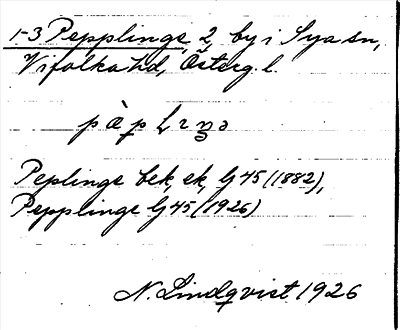 1-3 Pepplinge, 2, by i Sya sn,
Vifolka hd, Österg. l.
Peplinge bek, ek, Gj 45 (1882),
Pepplinge Gj 45 (1926)
N. Lindqvist 1926